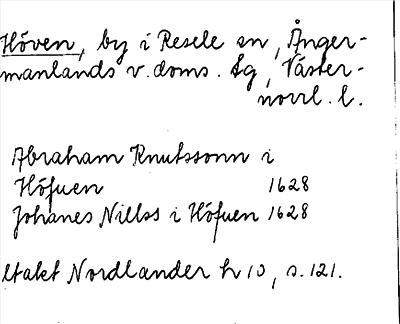 Höven, by i Resele sn, Ånger-
manlands v. doms. tg, Väster-
norrl. l.
Abraham Knutssonn i
Höfuen 1628
Johanes Nillss i Höfuen 1628
Nordlander h 10, s. 121.